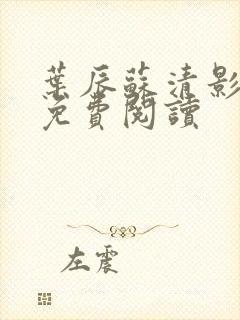 葉辰蘇清影
免費閱讀
左震